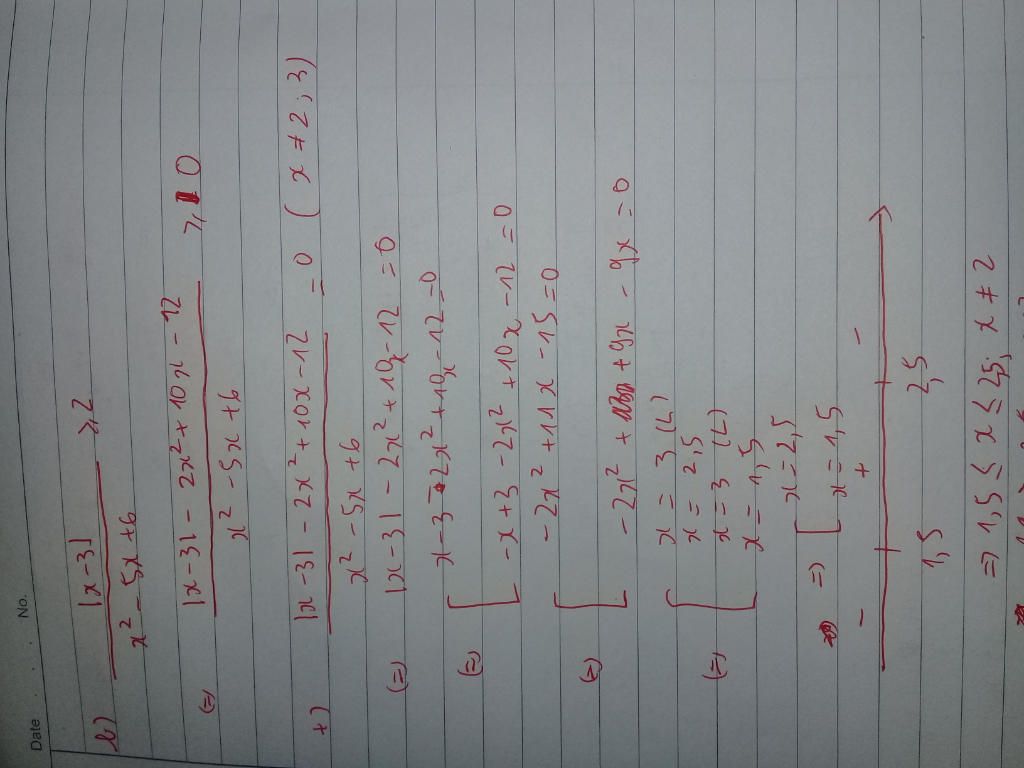 Date . . . No.
b) |x-3| / x² - 5x + 6 ≥ 2
(=) |x-3| - 2x² + 10x - 12 / x² - 5x + 6 ≥ 0
+) |x-3| - 2x² + 10x - 12 / x² - 5x + 6 = 0 ( x ≠ 2 ; 3)
(=) |x-3| - 2x² + 10x - 12 = 0
(=) [ x - 3 - 2x² + 10x - 12 = 0
-x + 3 - 2x² + 10x - 12 = 0
(=) [ -2x² + 11x - 15 = 0
-2x² + 9x - 9x = 0
(=) [ x = 3 (L)
x = 2,5
x = 3 (L)
x = 1,5
=) [ x = 2,5
x = 1,5
- + -
1,5 2,5
=) 1,5 ≤ x ≤ 2,5; x ≠ 2